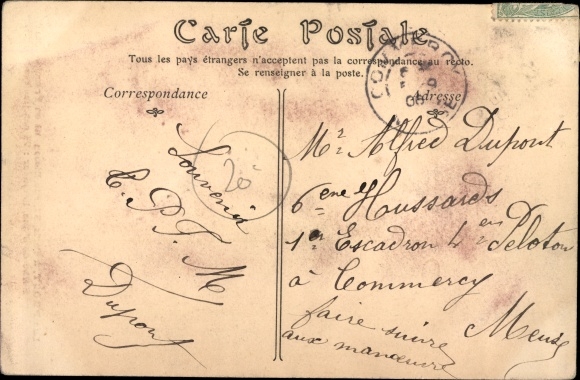 Carte Postale
Tous les pays étrangers n'acceptent pas la correspondance au recto.
Se renseigner à la poste.
Correspondance
Adresse
Souvenir
C. P. T. M
Dupont
20
Mr. Alfred Dupont
6eme Hussards
1er Escadron 4em Peloton
à Commercy
Meuse
faire suivre
aux manœuvre
COMMERCY